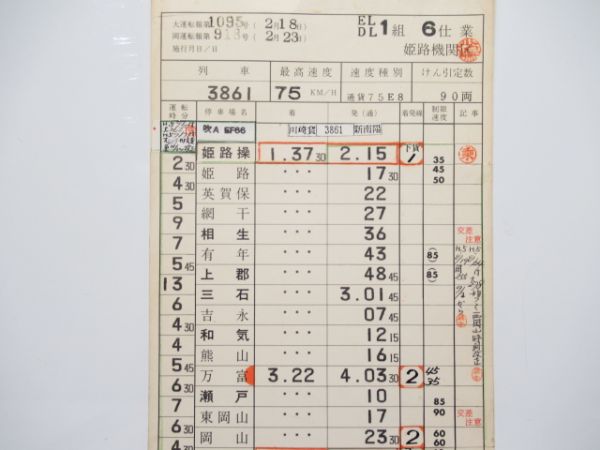 大運転報第1095号(2月18日)
岡運転報第913号(2月23日)
施行月日/日
EL
DL 1組 6仕業
姫路機関区
列車 最高速度 速度種別 けん引定数
3861 75 KM/H 通貨75E8 90両
運転時分 停車場名 着 発(通) 着発線 制限速度 記事
吹A EF66 田崎貨 3861 新南陽
姫路操 1.37 30 2.15 下貨1 35 乘
2 30 姫路 … 17 30 45
4 30 英賀保 … 22 50
5 網干 … 27
9 相生 … 36 交差注意
7 有年 … 43 (85)
5 45 上郡 … 48 45 (85)
13 三石 … 3.01 45
6 吉永 … 07 45
4 30 和気 … 12 15
4 熊山 … 16 15
5 45 万富 3.22 4.03 30 2 45 35
6 30 瀬戸 … 10 85
7 東岡山 … 17 90 交差注意
6 30 岡山 … 23 30 2 60
4 30 60